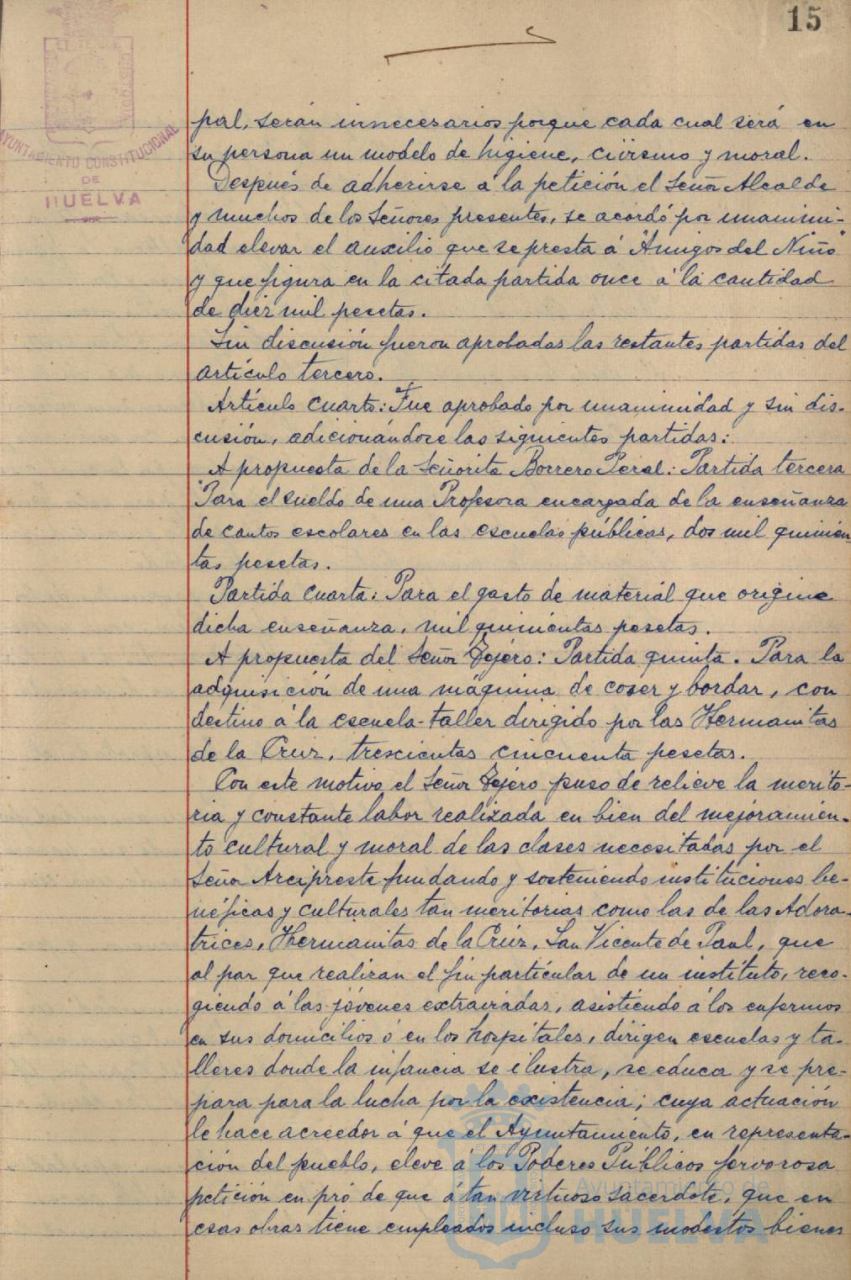 15
AYUNTAMIENTO CONSTITUCIONAL
DE
HUELVA
pal, serán innecesarios porque cada cual será en
su persona un modelo de higiene, civismo y moral.
Después de adherirse á la petición el Señor Alcalde
y muchos de los Señores presentes, se acordó por unanimi-
dad elevar el auxilio que se presta á "Amigos del Niño"
y que figura en la citada partida once á la cantidad
de diez mil pesetas.
Sin discusión fueron aprobadas las restantes partidas del
artículo tercero.
Artículo cuarto: Fue aprobado por unanimidad y sin dis-
cusión, adicionándose las siguientes partidas:
A propuesta de la Señorita Borrero Peral: Partida tercera
"Para el sueldo de una Profesora encargada de la enseñanza
de cantos escolares en las escuelas públicas, dos mil quinien-
tas pesetas.
Partida cuarta: Para el gasto de material que origine
dicha enseñanza, mil quinientas pesetas.
A propuesta del Señor Tejéro: Partida quinta. Para la
adquisición de una máquina de coser y bordar, con
destino á la escuela-taller dirigido por las Hermanitas
de la Cruz, trescientas cincuenta pesetas.
Con este motivo el Señor Tejéro puso de relieve la merito-
ria y constante labor realizada en bien del mejoramien-
to cultural y moral de las clases necesitadas por el
Señor Arcipreste fundando y sosteniendo instituciones be-
néficas y culturales tan meritorias como las de las Adora-
trices, Hermanitas de la Cruz, San Vicente de Paul, que
al par que realizan el fin particular de un instituto, reco-
giendo á las jóvenes extraviadas, asistiendo á los enfermos
en sus domicilios ó en los hospitales, dirigen escuelas y ta-
lleres donde la infancia se ilustra, se educa y se pre-
para para la lucha por la existencia; cuya actuación
le hace acreedor á que el Ayuntamiento, en representa-
ción del pueblo, eleve á los Poderes Públicos fervorosa
petición en pró de que á tan virtuoso sacerdote, que en
esas obras tiene empleados incluso sus modestos bienes
Ayuntamiento de
HUELVA